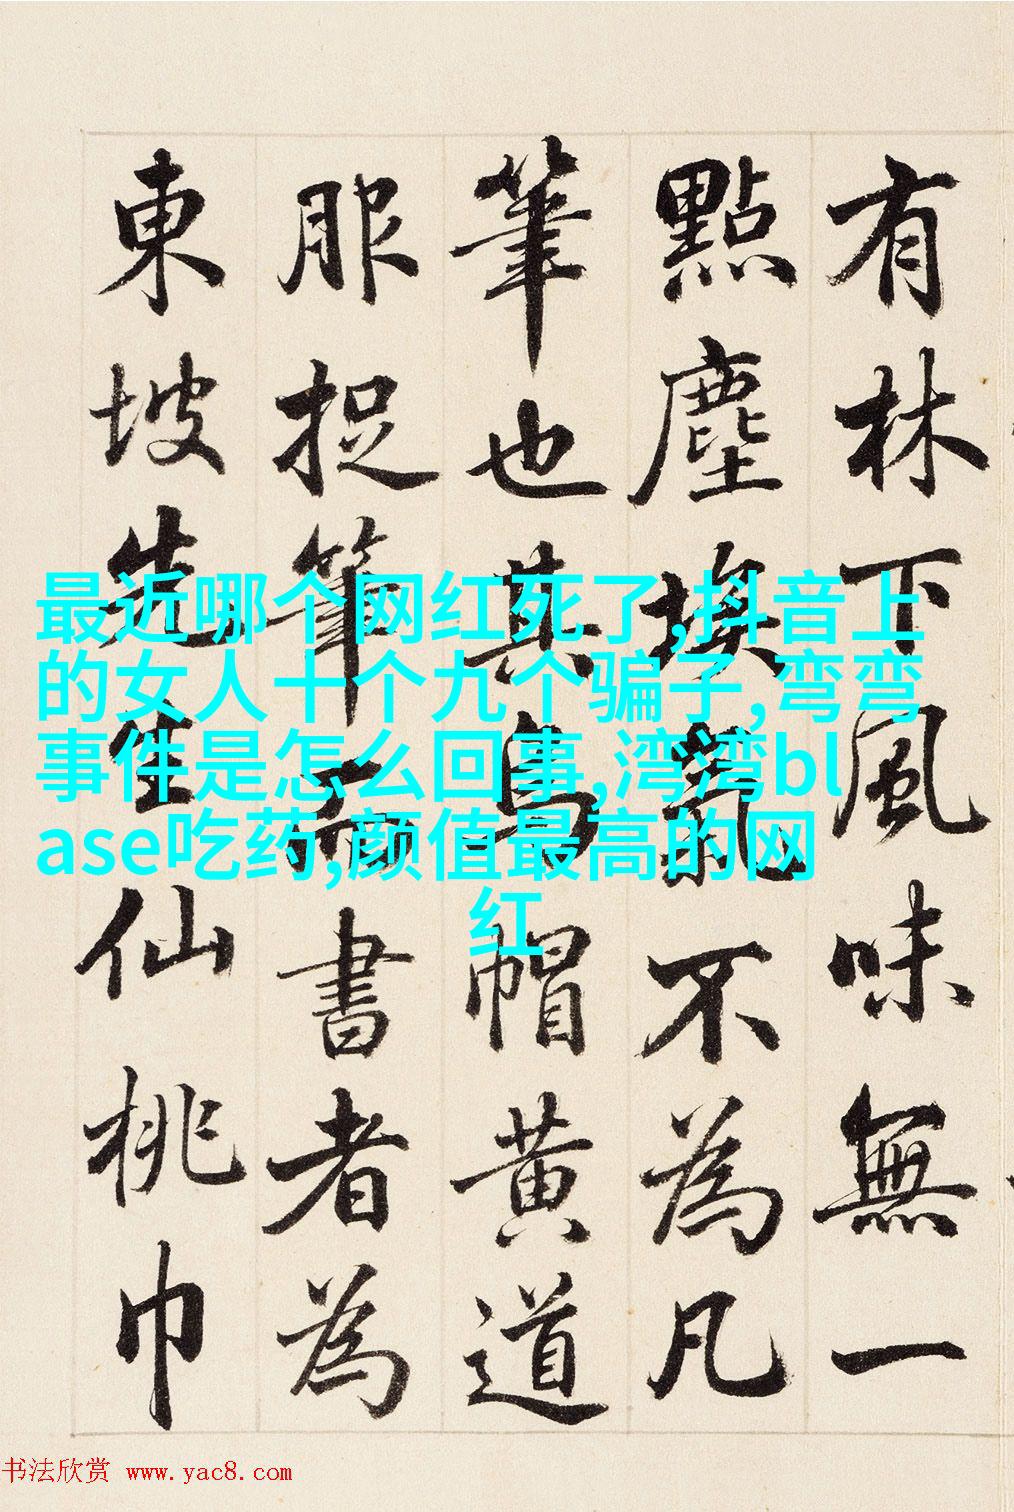 有林下風味無一
點塵埃氣不為凡
筆也其烏帽黃道
服捉筆而書者為
東坡先生仙桃巾
最近哪个网红死了,抖音上
的女人十个九个骗子,弯弯
事件是怎么回事,湾湾bl
ase吃药,颜值最高的网
红
书法欣赏 www.yac8.com